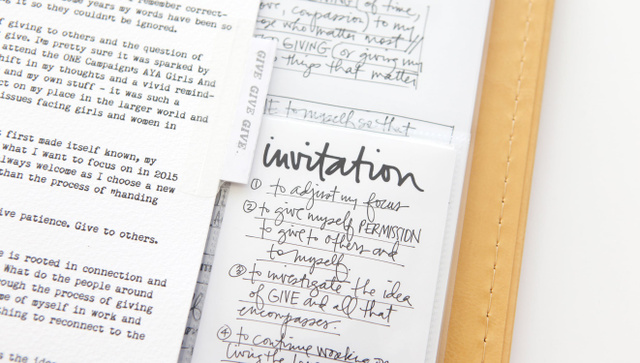 I remember correct-
some years my words have been so
g it so they couldnt be ignored.
f giving to others and the question of
give. I'm pretty sure it was sparked by
attend the ONE Campaigns AYA Girls And
hift in my thoughts and a vivid remind-
and my own stuff - it was such a
ct on my place in the larger world and
issues facing girls and women in
first made itself known, my
what I want to focus on in 2015
lways welcome as I choose a new
than the process of *handing
ive patience. Give to others.
e is rooted in connection and
What do the people around
ough the process of giving
me of myself in work and
thing to reconnect to the
the idea
GIVE GIVE GIVE.
of time,
compassion) to my
who matter most
GIVING (or giving my
things that matter
to myself so that
invitation
① to adjust my focus
② to give myself PERMISSION
to give to others and
to myself.
③ to investigate the idea
of GIVE and all that
encompasses.
④ to continue working on
living the